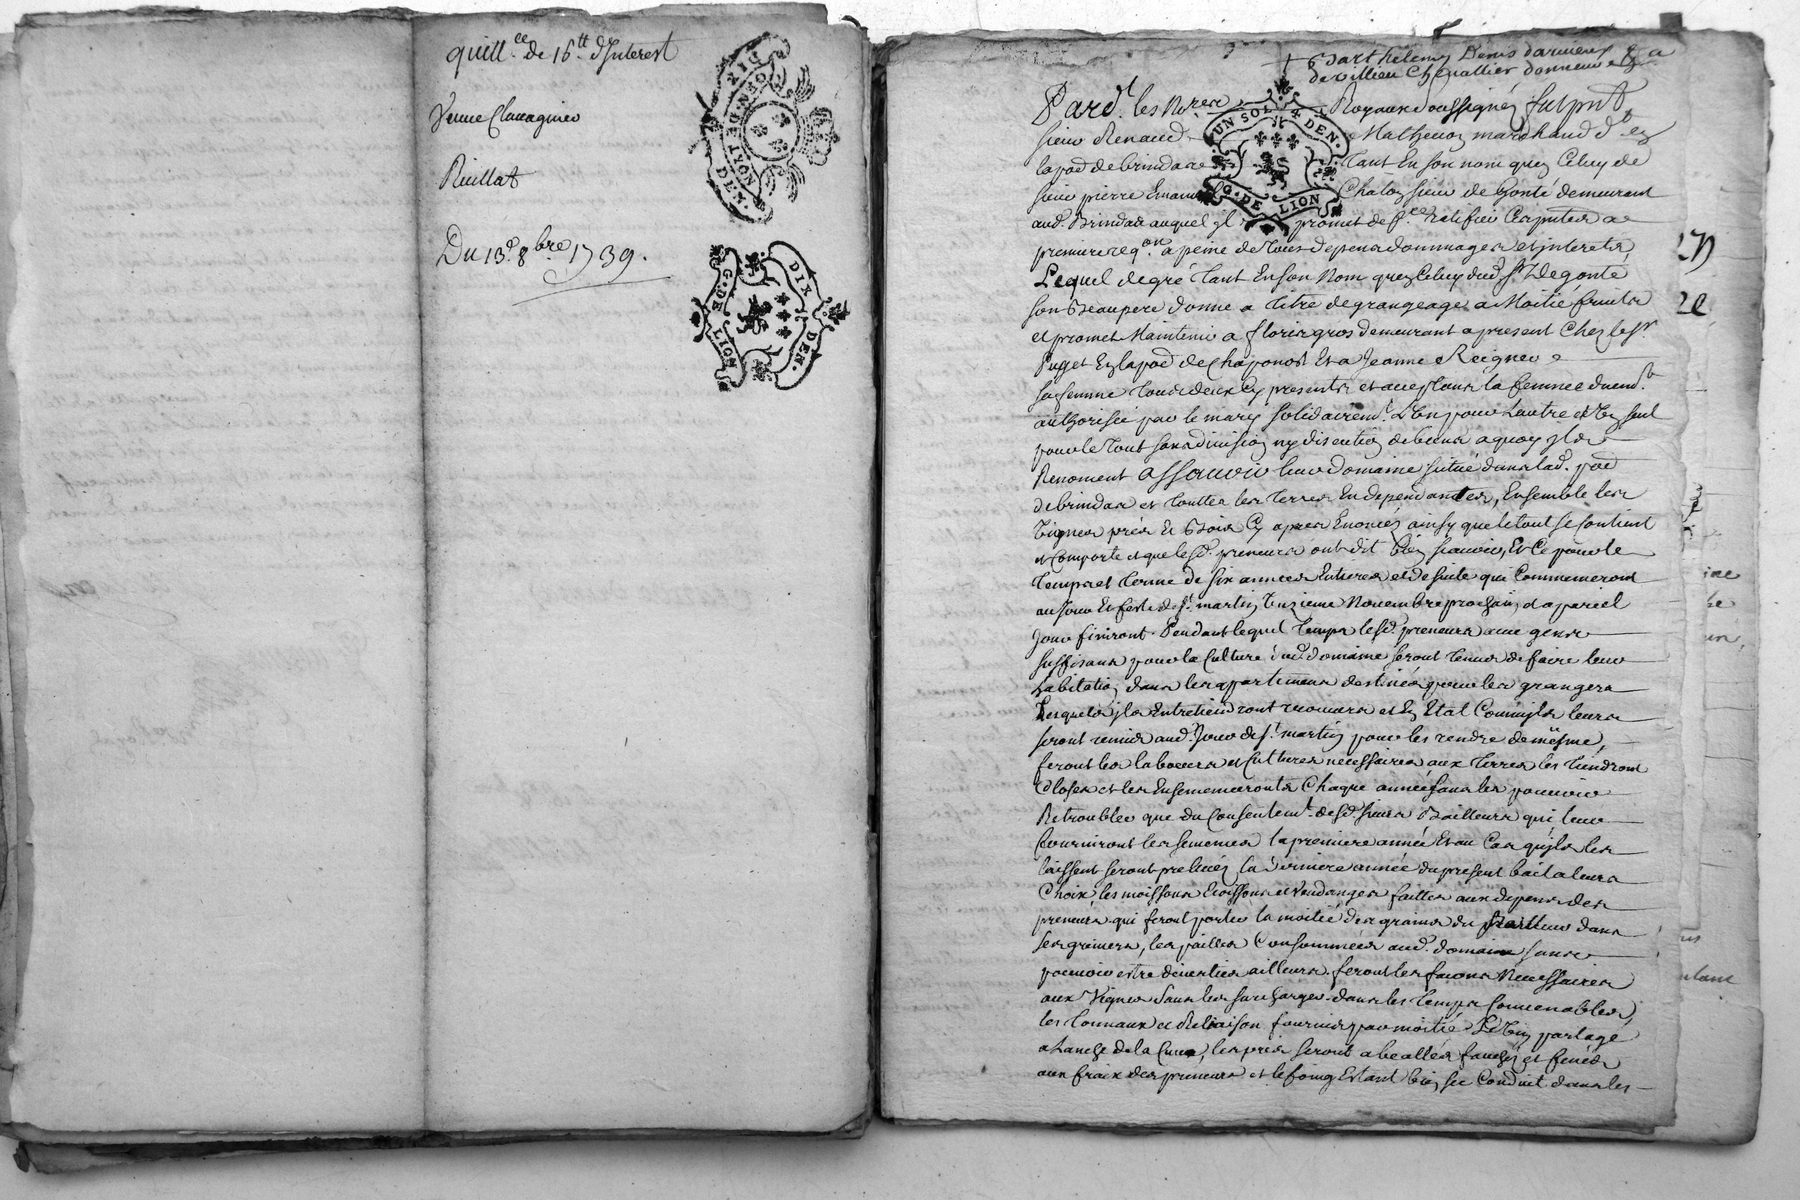 quitt.ce de 16tt d'Interest
Veuve Chavagnieu
Ruillat
Du 13e 8bre 1739.
DIX DEN.
G. DE LION
UN SOL 4 DEN.
G. DE LION
Barthelemy Denis
de villieu Chevallier
Pard.t les No.res Royaux soussignéz fut pnt
sieur Renaud Mathevon marchand dt en
la psse de brindas tant en son nom que celuy de
sieur pierre Emanuel Chaton sieur de Gonté demeurant
aud. Brindas auquel jl promet de fe ratifier ces pntes a
premiere reqon a peine de tous depens dommages et interets,
Lequel de gre tant en son Nom que celuy dud sr De gonte
son Beaupere donne a titre de grangeage a Moitié fruits
et promet Maintenir a floris gros demeurant a present chez le sr.
Puget en la psse de chaponost et a Jeanne Reignier
sa femme tous deux cy presents et acceptans la femme duemt
authorisée par le mary solidairemt. L'un pour l'autre et un seul
pour le tout sans division ny discution de biens a quoy jls
Renoncent assavoir leur domaine situé dans lad. psse
de brindas et touttes les terres en dependantes, Ensemble les
vignes prés et Bois cy apres enoncés ainsy que le tout se contient
et comporte et que lesd. preneurs ont dit bien scavoir, Et ce pour le
temps et terme de six années entieres et de suite qui commenceront
au jour et feste de st. martin unzieme Novembre prochain et a pareil
jour finiront. Pendant lequel temps lesd. preneurs avec gens
suffisans pour la culture dud domaine seront tenus de faire leur
habitation dans les appartements destinés pour les grangers
Lesquels jls entretiendront recouverts et en Etat comme jls leurs
seront remis aud. jour de st. martin pour les rendre de mesme,
feront les labours et cultures necessaires aux terres les tiendront
closes et les ensemenceronts chaque année sans les pouvoir
Retroubler que du consentemt. desd. sieurs Bailleurs qui leur
fourniront les semences la premiere année et au cas qu'jls les
laissent seront prelevés la derniere année du present bail a leurs
choix, les moissons Ecossons et vendanges faittes aux depens des
preneurs qui feront porter la moitié des grains du Bailleur dans
ses greniers, les pailles consommées aud. domaine sans
pouvoir estre diverties ailleurs. feront les façons Necessaires
aux vignes sans les surcharger dans les temps convenables,
les tonnaux et Reliaison fournis par moitié Le vin partagé
a L'anche de la cuve, les prés seront abeallés fauchés et fenés
aux fraix des preneurs et le foing Estant bien sec conduit dans les